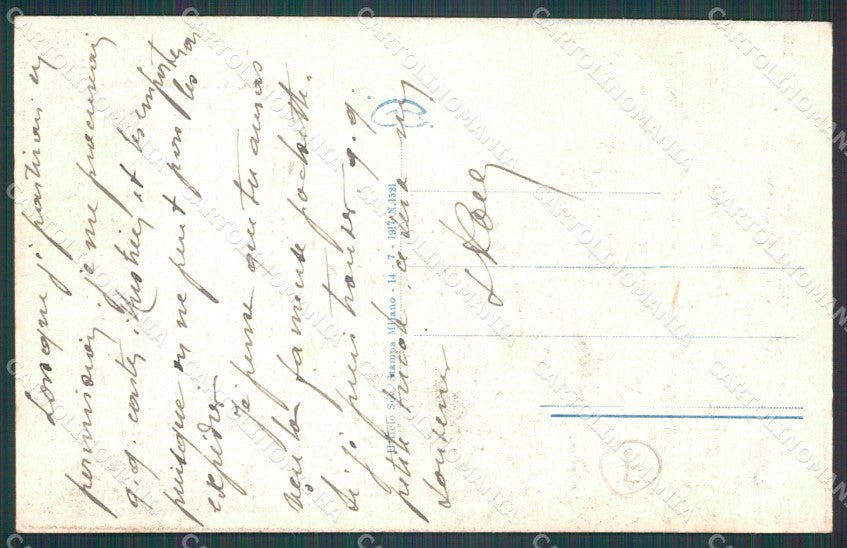 Lorsque je partirai en
permission, je me procurerai
q.q. cartes illustrées et les emporterai
puisque on ne peut pas les
expédier
Je pense que tu auras
reçu la fameuse pochette.
Si je puis trouver q.q.
petite bricole, ce sera un
souvenir
Ufficio Sec. Stampa Milano - 14 - 7 - 1917 N. 1521
L
CARTOLINOMANIA